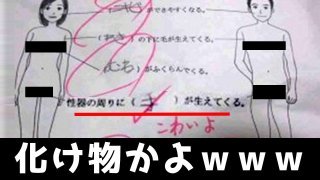 (にきび)ができやすくなる。
(わき)の下に毛が生えてくる。
(むね)がふくらんでくる。
性器の周りに(きば)が生えてくる。
こわいよ
化け物かよｗｗｗ